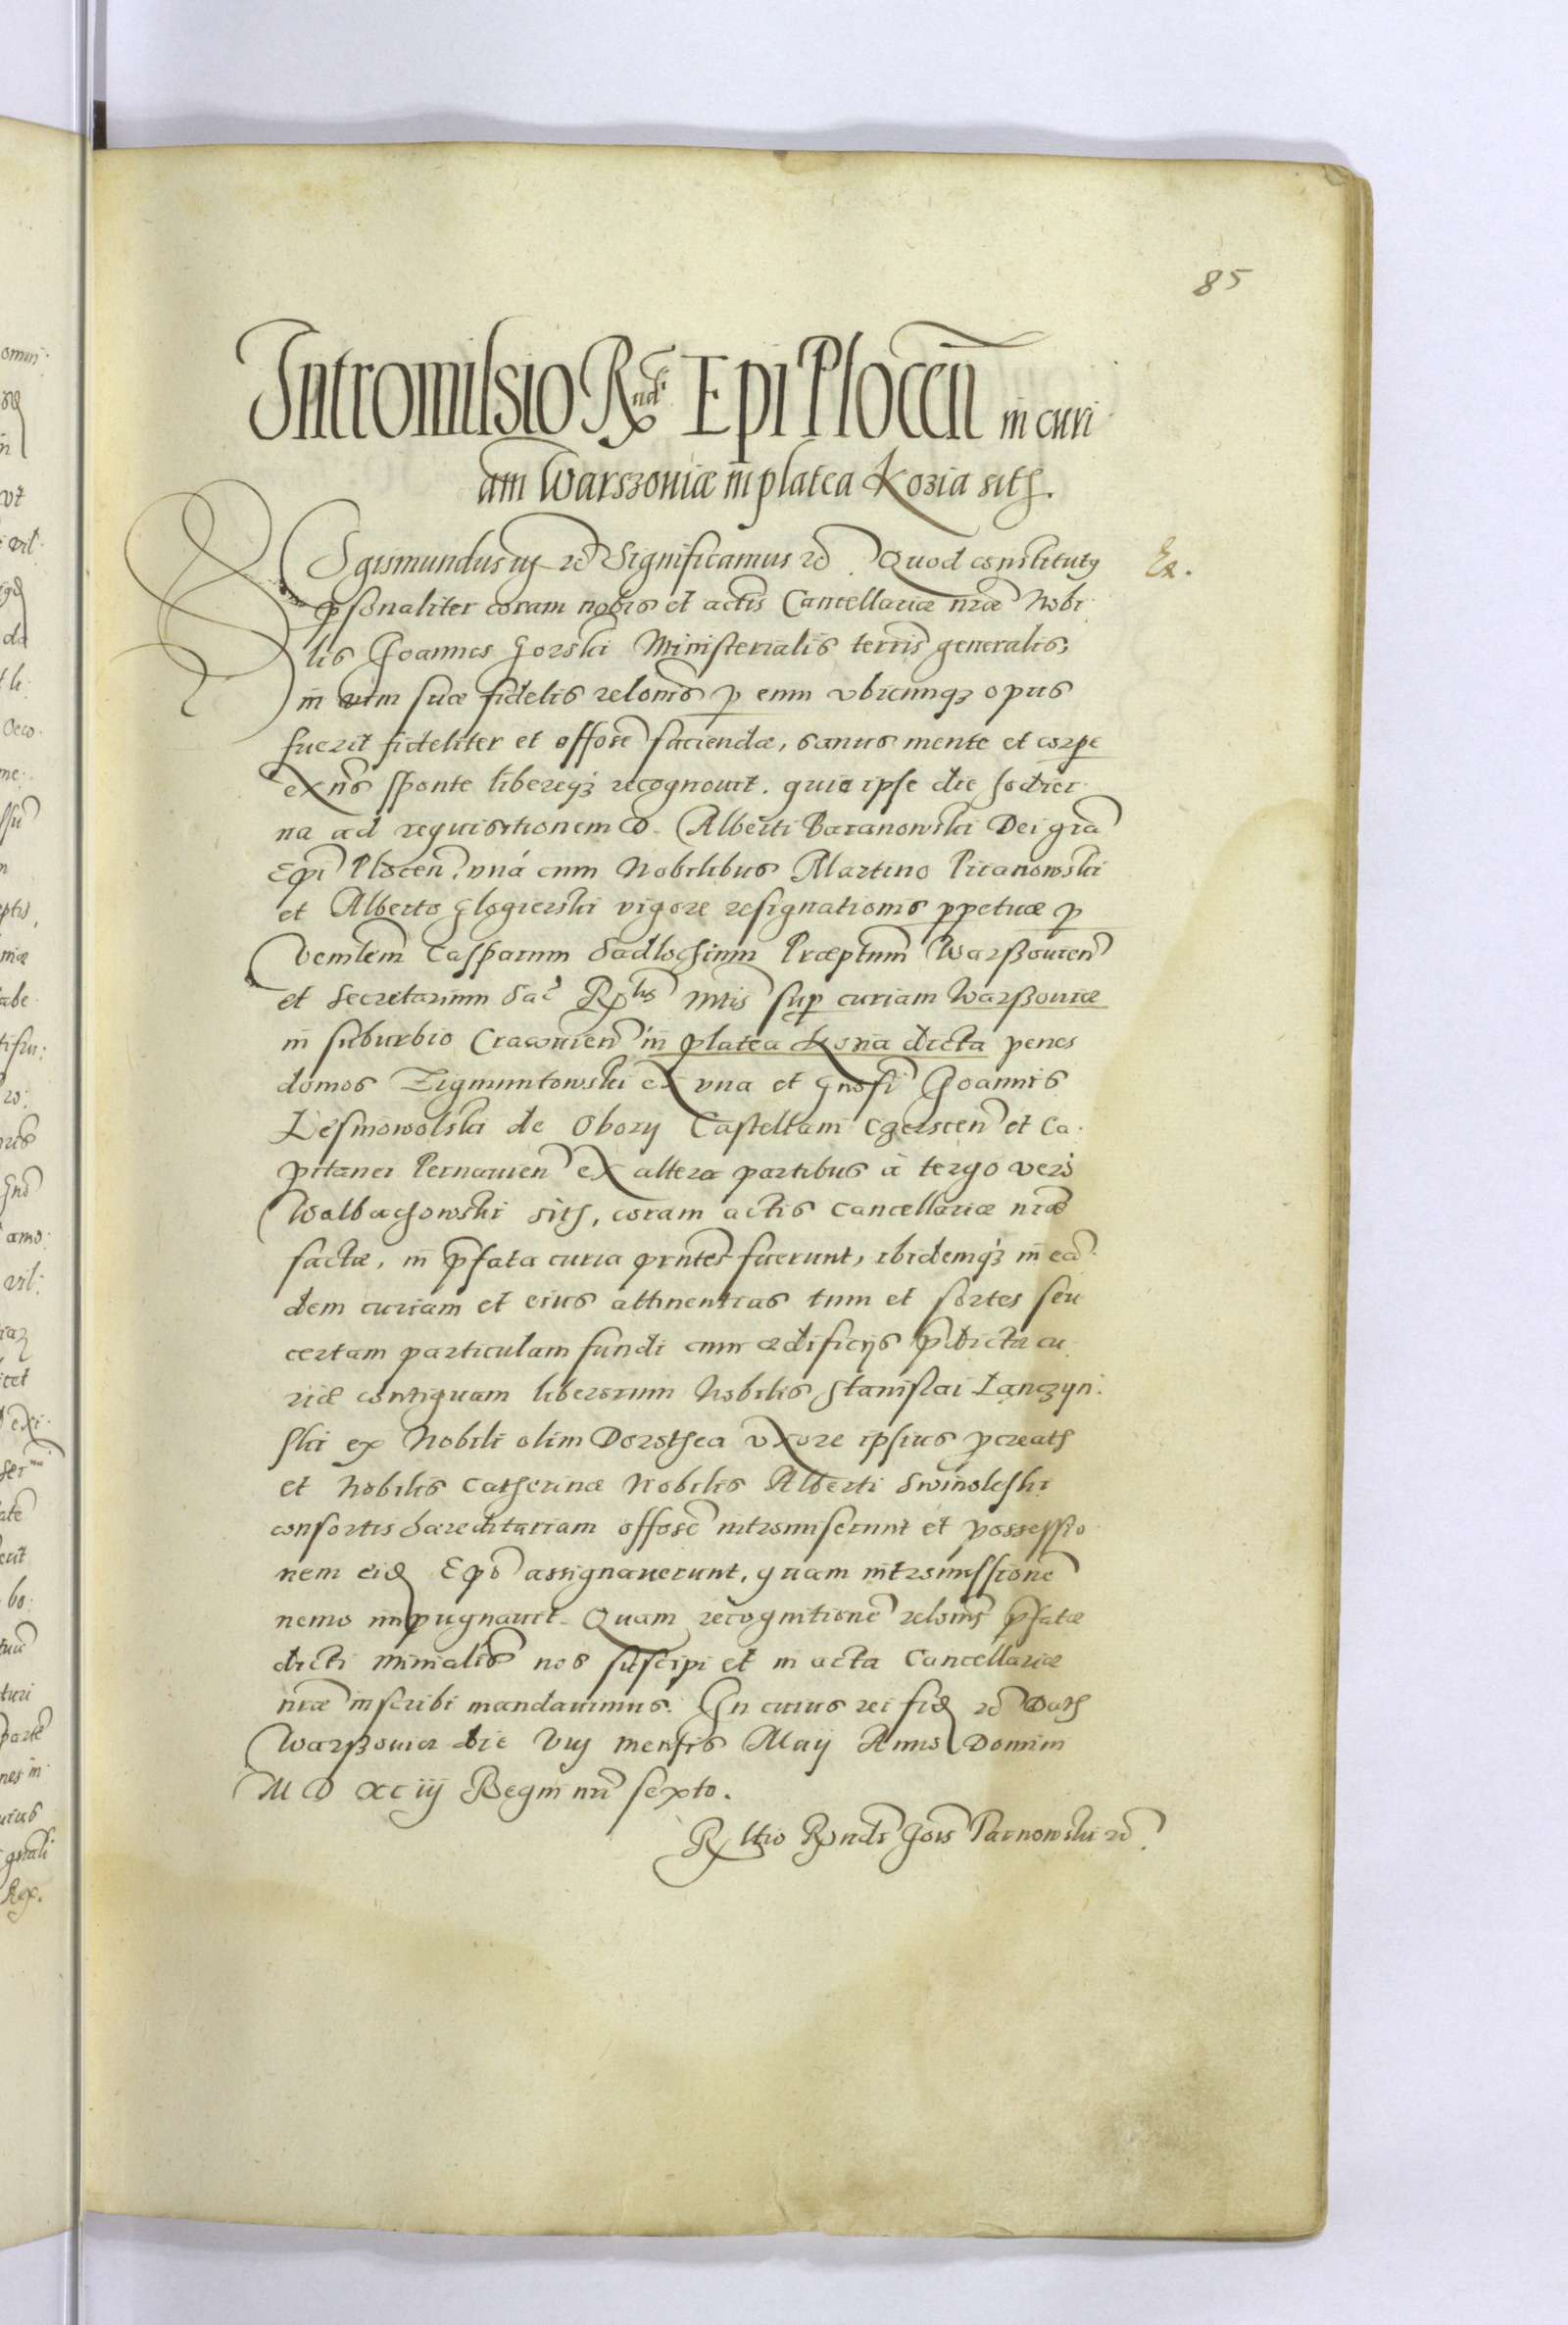 85
Intromissio Rndi Epi Plocen̄ in curi
am Warszoviæ in platea Kozia sitā.
Sigismundus iij etc Significamus etc. Quod constitutus
p̱sonaliter coram nobis et actis Cancellariæ nr̄æ Nobi
lis Joannes Gorski Ministerialis terris generalis,
in vim suæ fidelis relōnis p̱ eum ubicunqꝫ opus
fuerit fideliter et offose faciendæ, sanus mente et corpe
exn̄s sponte libereqꝫ recognovit. quia ipse die hodier
na ad requisitionem D. Alberti Baranowski Dei grā
Epī Plocen̄. unà cum Nobilibus Martino Picanowski
et Alberto Glogierski vigore resignationis p̱petuæ p̱
Venlem Casparum Sadlochium Præptum Warßovien̄
et Secretarium Sac Rp̱lis Mtis sup̱ curiam Warßoviæ
in suburbio Cracovien̄ in platea Kozia dicta penes
domos Zigmuntowski ex una et Gnosi Joannis
Lesniowolski de Obory Castellani Cgerscen̄ et Ca
pitanei Pernavien̄ ex altera partibus à tergo verò
Walbachowski sitā, coram actis Cancellariæ nræ
factæ, in p̄fata curia prntes fuerunt, ibidemqꝫ in ean
dem curiam et eius attinentias tum et sortes seu
certam particulam fundi cum ædificijs p̄dictæ cu
riæ contiguam liberorum Nobilis Stanislai Łanczyn
ski ex Nobili olim Dorothea uxore ipsius p̱creatā
et Nobilis Catherinæ Nobilis Alberti Swinoleski
consortis hæreditariam offose intromiserunt et possessio
nem eid Epō assignaverunt, quam intromissione
nemo impugnavit. Quam recognitione relōnis p̄fatæ
dicti Minialis nos suscipi et in acta Cancellariæ
nræ inscribi mandavimus. In cuius rei fid etc Datā
Warßoviæ die Vij mensis Maij Anno Domini
M D XC iij Regni nri sexto.
Rltio Rp̱ndi Jois Tarnowski etc
Ex.